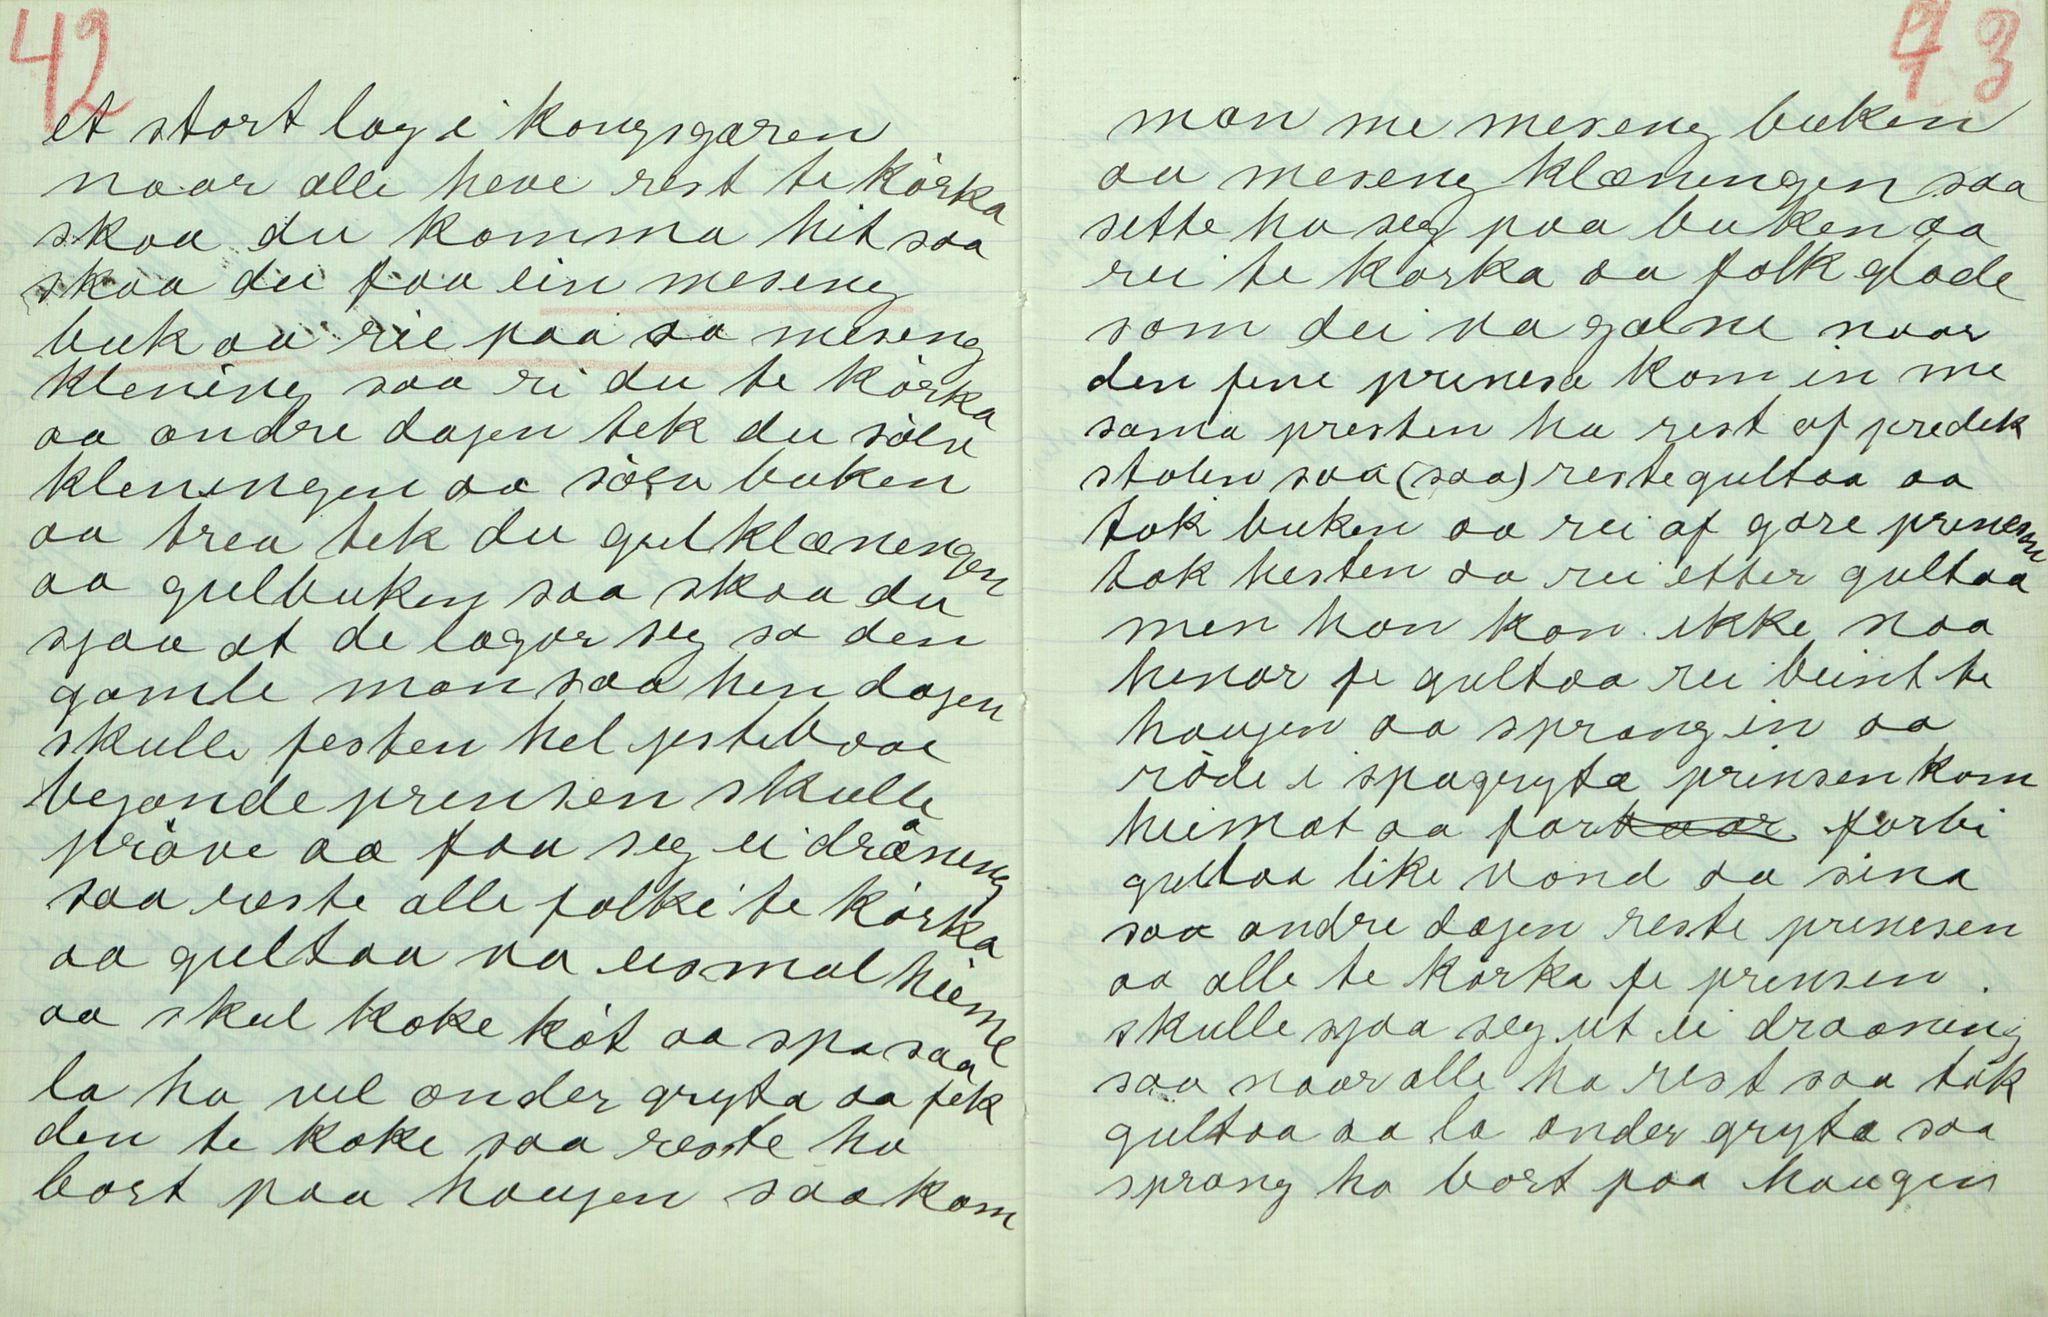 42
et stort lag i kongsgaren
naar alle heve rest te kòrka
skaa du komma hit saa
skaa du faa ein meseng
buk aa rie paa aa meseng
klening saa ri du te kòrka
aa andre dagen tek du sòlv
kleningen aa sòlv buken
aa trea tek du gulklæningen
aa gulbuken saa skaa du
sjaa at de lagar seg sa den
gamle man saa hen dagen
skulle festen hel jestebaae
begande prinsen skulle
pròve aa faa seg ei dråneng
saa reste alle folki te kòrka
aa gultaa va eismal hieme
aa skul koke kòt aa spa saa
la ho vel onder gryta aa fek
den te koke saa reste ho
bort paa haugen saa kom
43
man me meseng buken
aa meseng klæningen saa
sette ho seg paa buken aa
rei te korka aa folk glode
som dei va galne naar
den fine prinesa kom in me
sama presten ha rest af predek
stolen saa (saa) reste gultaa aa
tok buken aa rei af gare prinesen
tok hesten aa rei etter gultaa
men han kan ikke naa
henar fe gultaa rei beint te
haugen aa sprang in aa
ròde i spagryta prinsen kom
heimat aa forbaar forbi
gultaa like vond aa sina
saa andre dagen reste prinesen
aa alle te korka fe prinsen.
skulle sjaa seg ut ei draaneng
saa naar alle ha rest saa tok
gultaa aa la onder gryta saa
sprang ho bort paa haugen